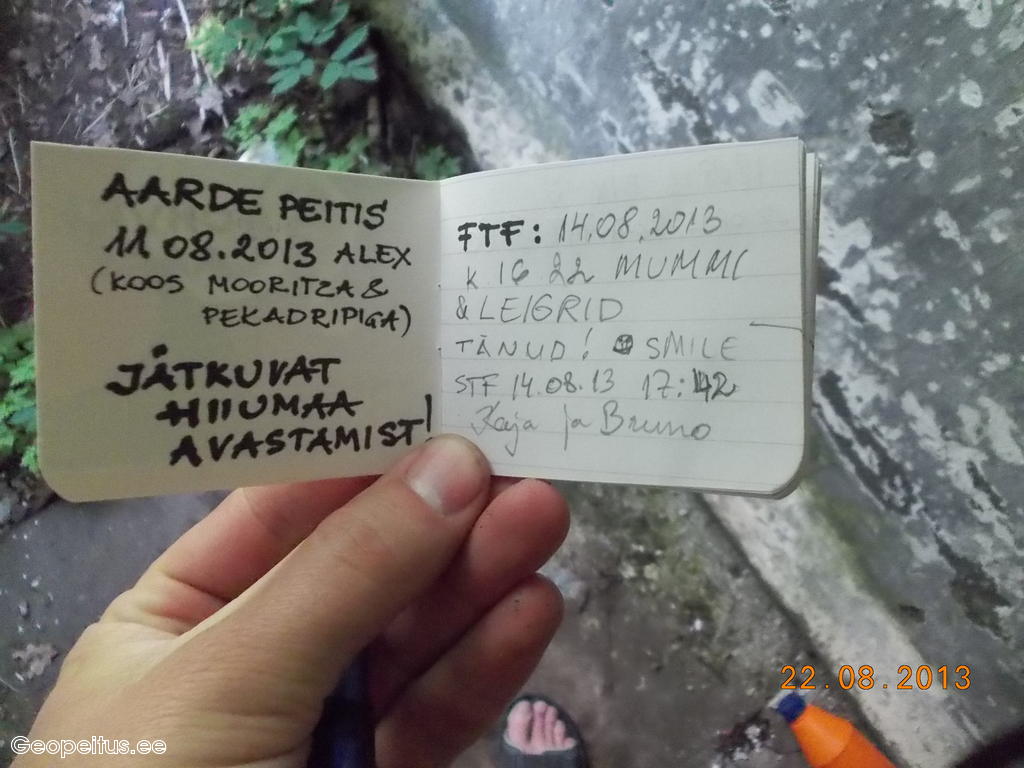 AARDE PEITIS
11.08.2013 ALEX
(KOOS MOORITZA &
PEKADRIPIGA)
JÄTKUVAT
HIIUMAA
AVASTAMIST!
FTF: 14.08.2013
K 16 22 MUMMI
& LEIGRID
TÄNUD! SMILE
STF 14.08.13 17:42
Kaja ja Bruno
22.08.2013
Geopeitus.ee